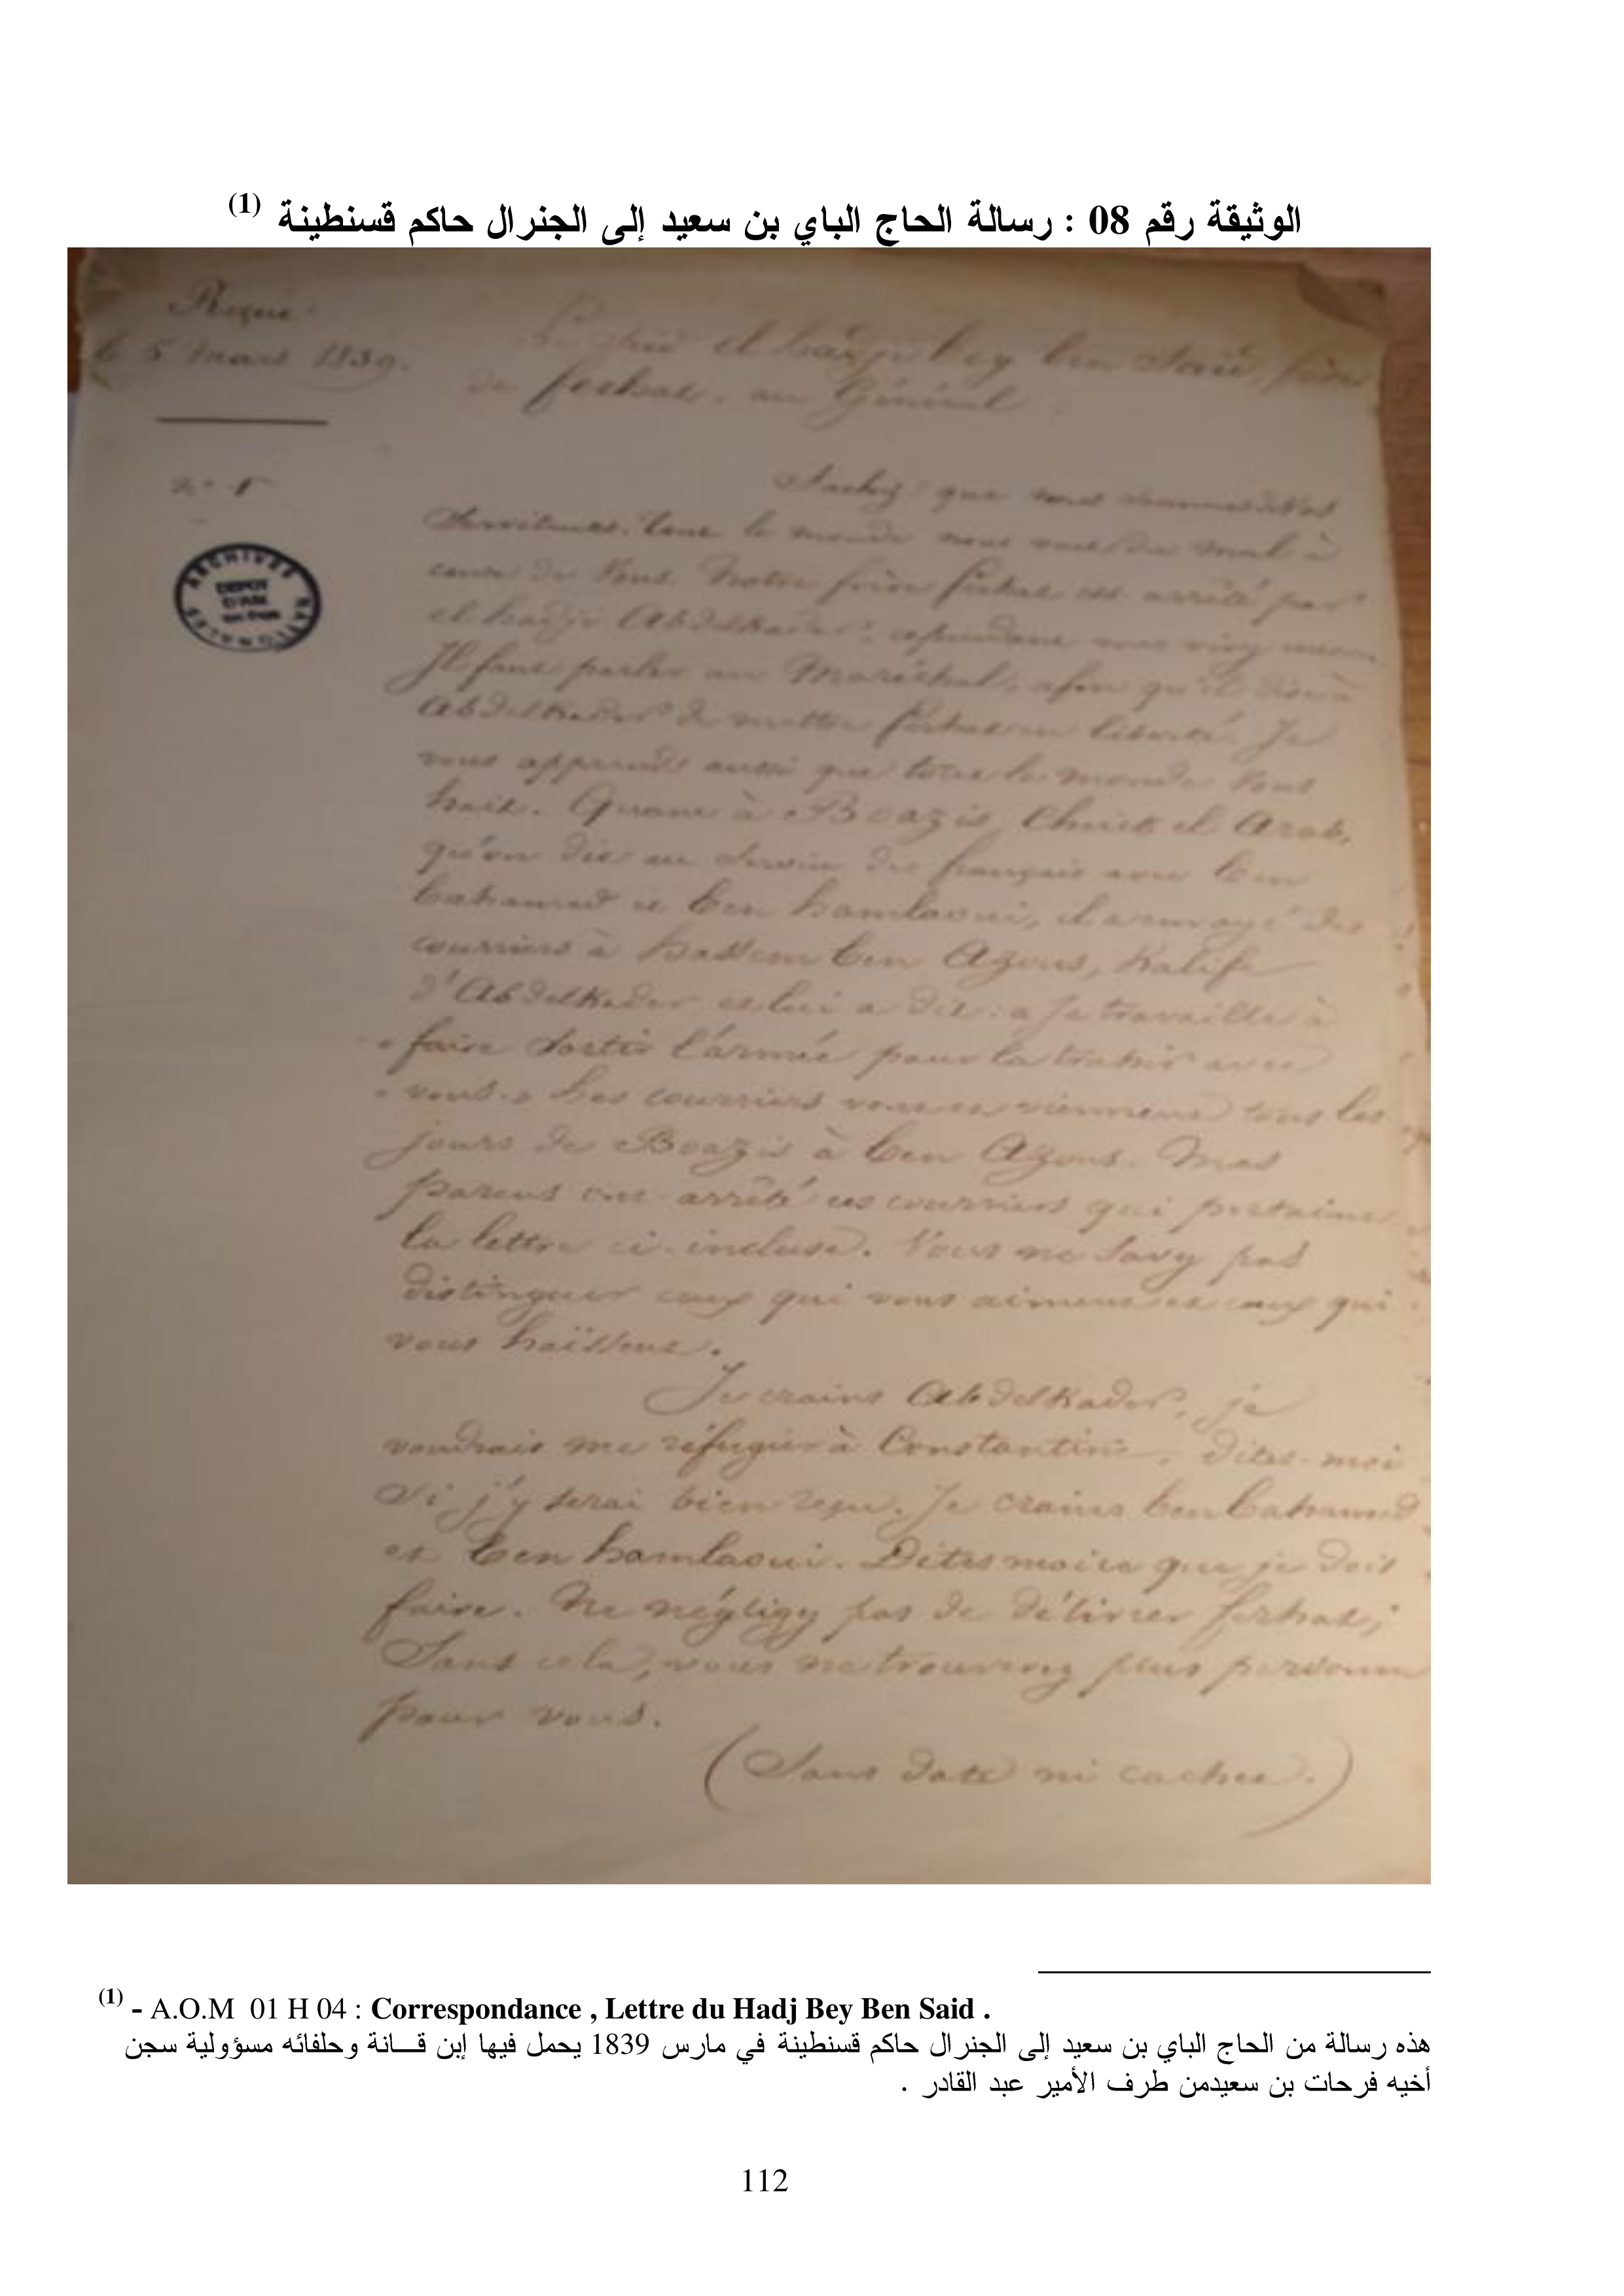 الوثيقة رقم 08 : رسالة الحاج الباي بن سعيد إلى الجنرال حاكم قسنطينة (1)
Reçue
le 5 mars 1839.
el hadji bey ben Said, frère
de ferhat, au Général
n° 1
ARCHIVES NATIONALES
DEPOT
Sachez que nous sommes Vos
Serviteurs. tout le monde nous veut du mal à
cause de Vous. Notre frère ferhat est arrêté par
el hadji Abdelkader, cependant vous
Il faut parler au Maréchal, afin qu'il dise à
Abdelkader de mettre ferhat en liberté. Je
vous apprends aussi que tout le monde Vous
hait. Quant à Boazis, Cheick el Arab,
qu'on dit au Service des français avec ben
bahamed et ben hamlaoui, il a envoyé des
courriers à ben Azous, Kalife
d'Abdelkader et lui a dit : « Je travaille à
« faire Sortir l'armée pour la trahir avec
« vous. » Les courriers vont et viennent tous les
jours de Boazis à ben Azous. Mes
parens ont arrêté ces courriers qui portaient
la lettre ci-incluse. Vous ne Savez pas
distinguer ceux qui vous aiment et ceux qui
vous haïssent.
Je crains Abdelkader, je
voudrais me réfugier à Constantine, dites-moi
Si j'y serai bien reçu. Je crains ben bahamed
et ben hamlaoui. Dites moi ce que je dois
faire. Ne négligez pas de délivrer ferhat ;
Sans cela, vous ne trouverez plus personne
pour vous.
(Sans date ni cachet.)
(1) - A.O.M 01 H 04 : Correspondance , Lettre du Hadj Bey Ben Said .
هذه رسالة من الحاج الباي بن سعيد إلى الجنرال حاكم قسنطينة في مارس 1839 يحمل فيها إبن قـــانة وحلفائه مسؤولية سجن
أخيه فرحات بن سعيدمن طرف الأمير عبد القادر .
112